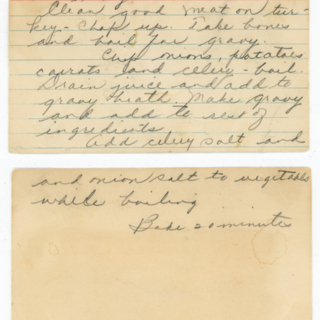 Clean good meat on tur-
key - Chop up. Take bones
and boil for gravy.
Cup onions, potatoes
carrats and celery - boil.
Drain juice and add to
gravy broath. Make gravy
and add to rest of
ingredients
Add celery salt and
and onion salt to vegetables
while boiling
Bake 20 minutes